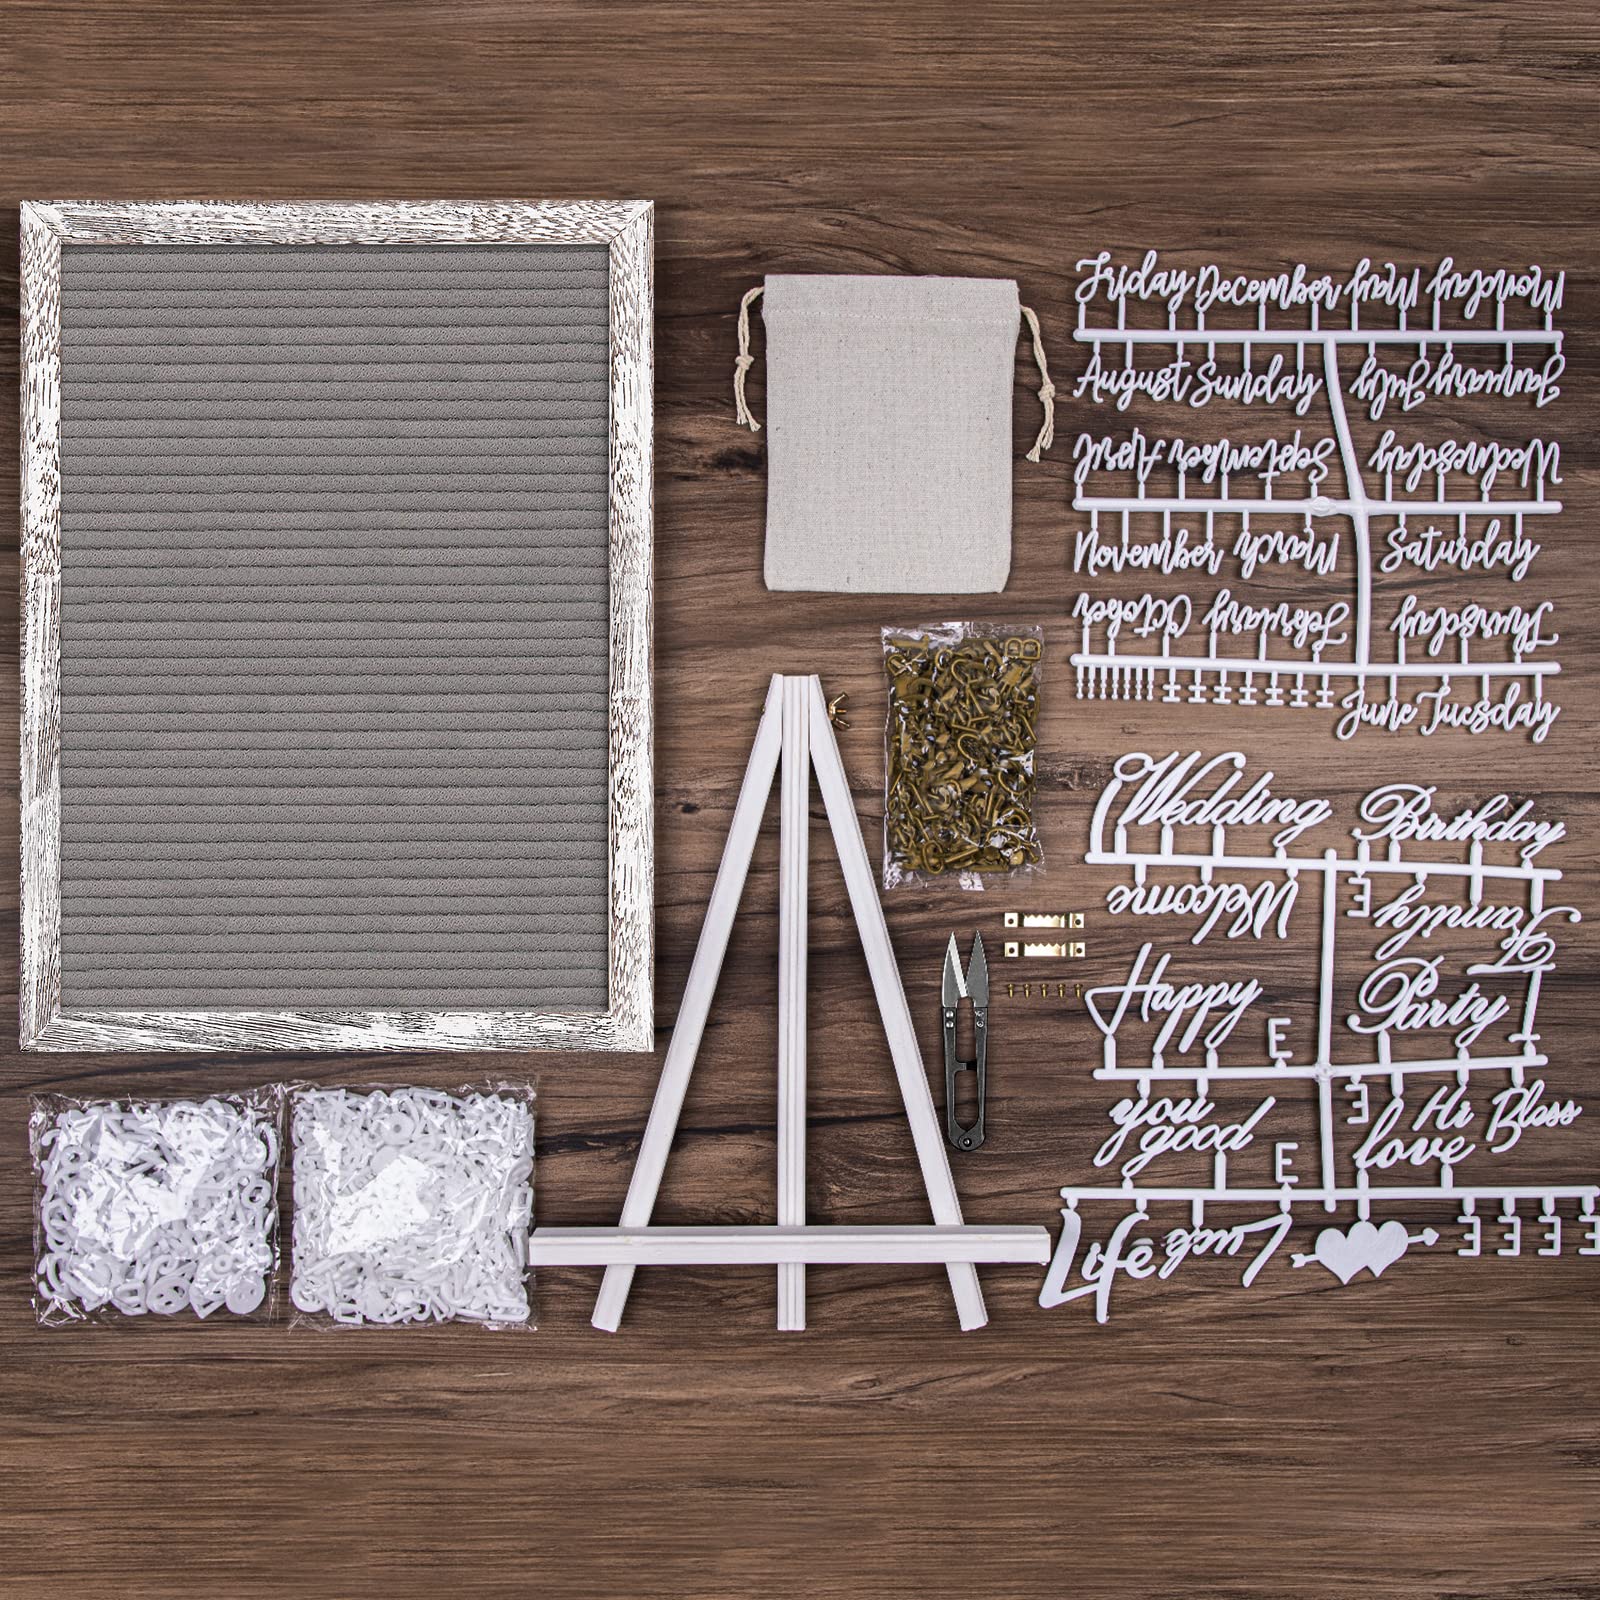 Friday December May Monday
August Sunday July January
April September Wednesday
November March Saturday
October February Thursday
June Tuesday
Wedding Birthday
Welcome E Family
Happy E Party I
you E Hi Bless
good E love
Life Luck E E E E